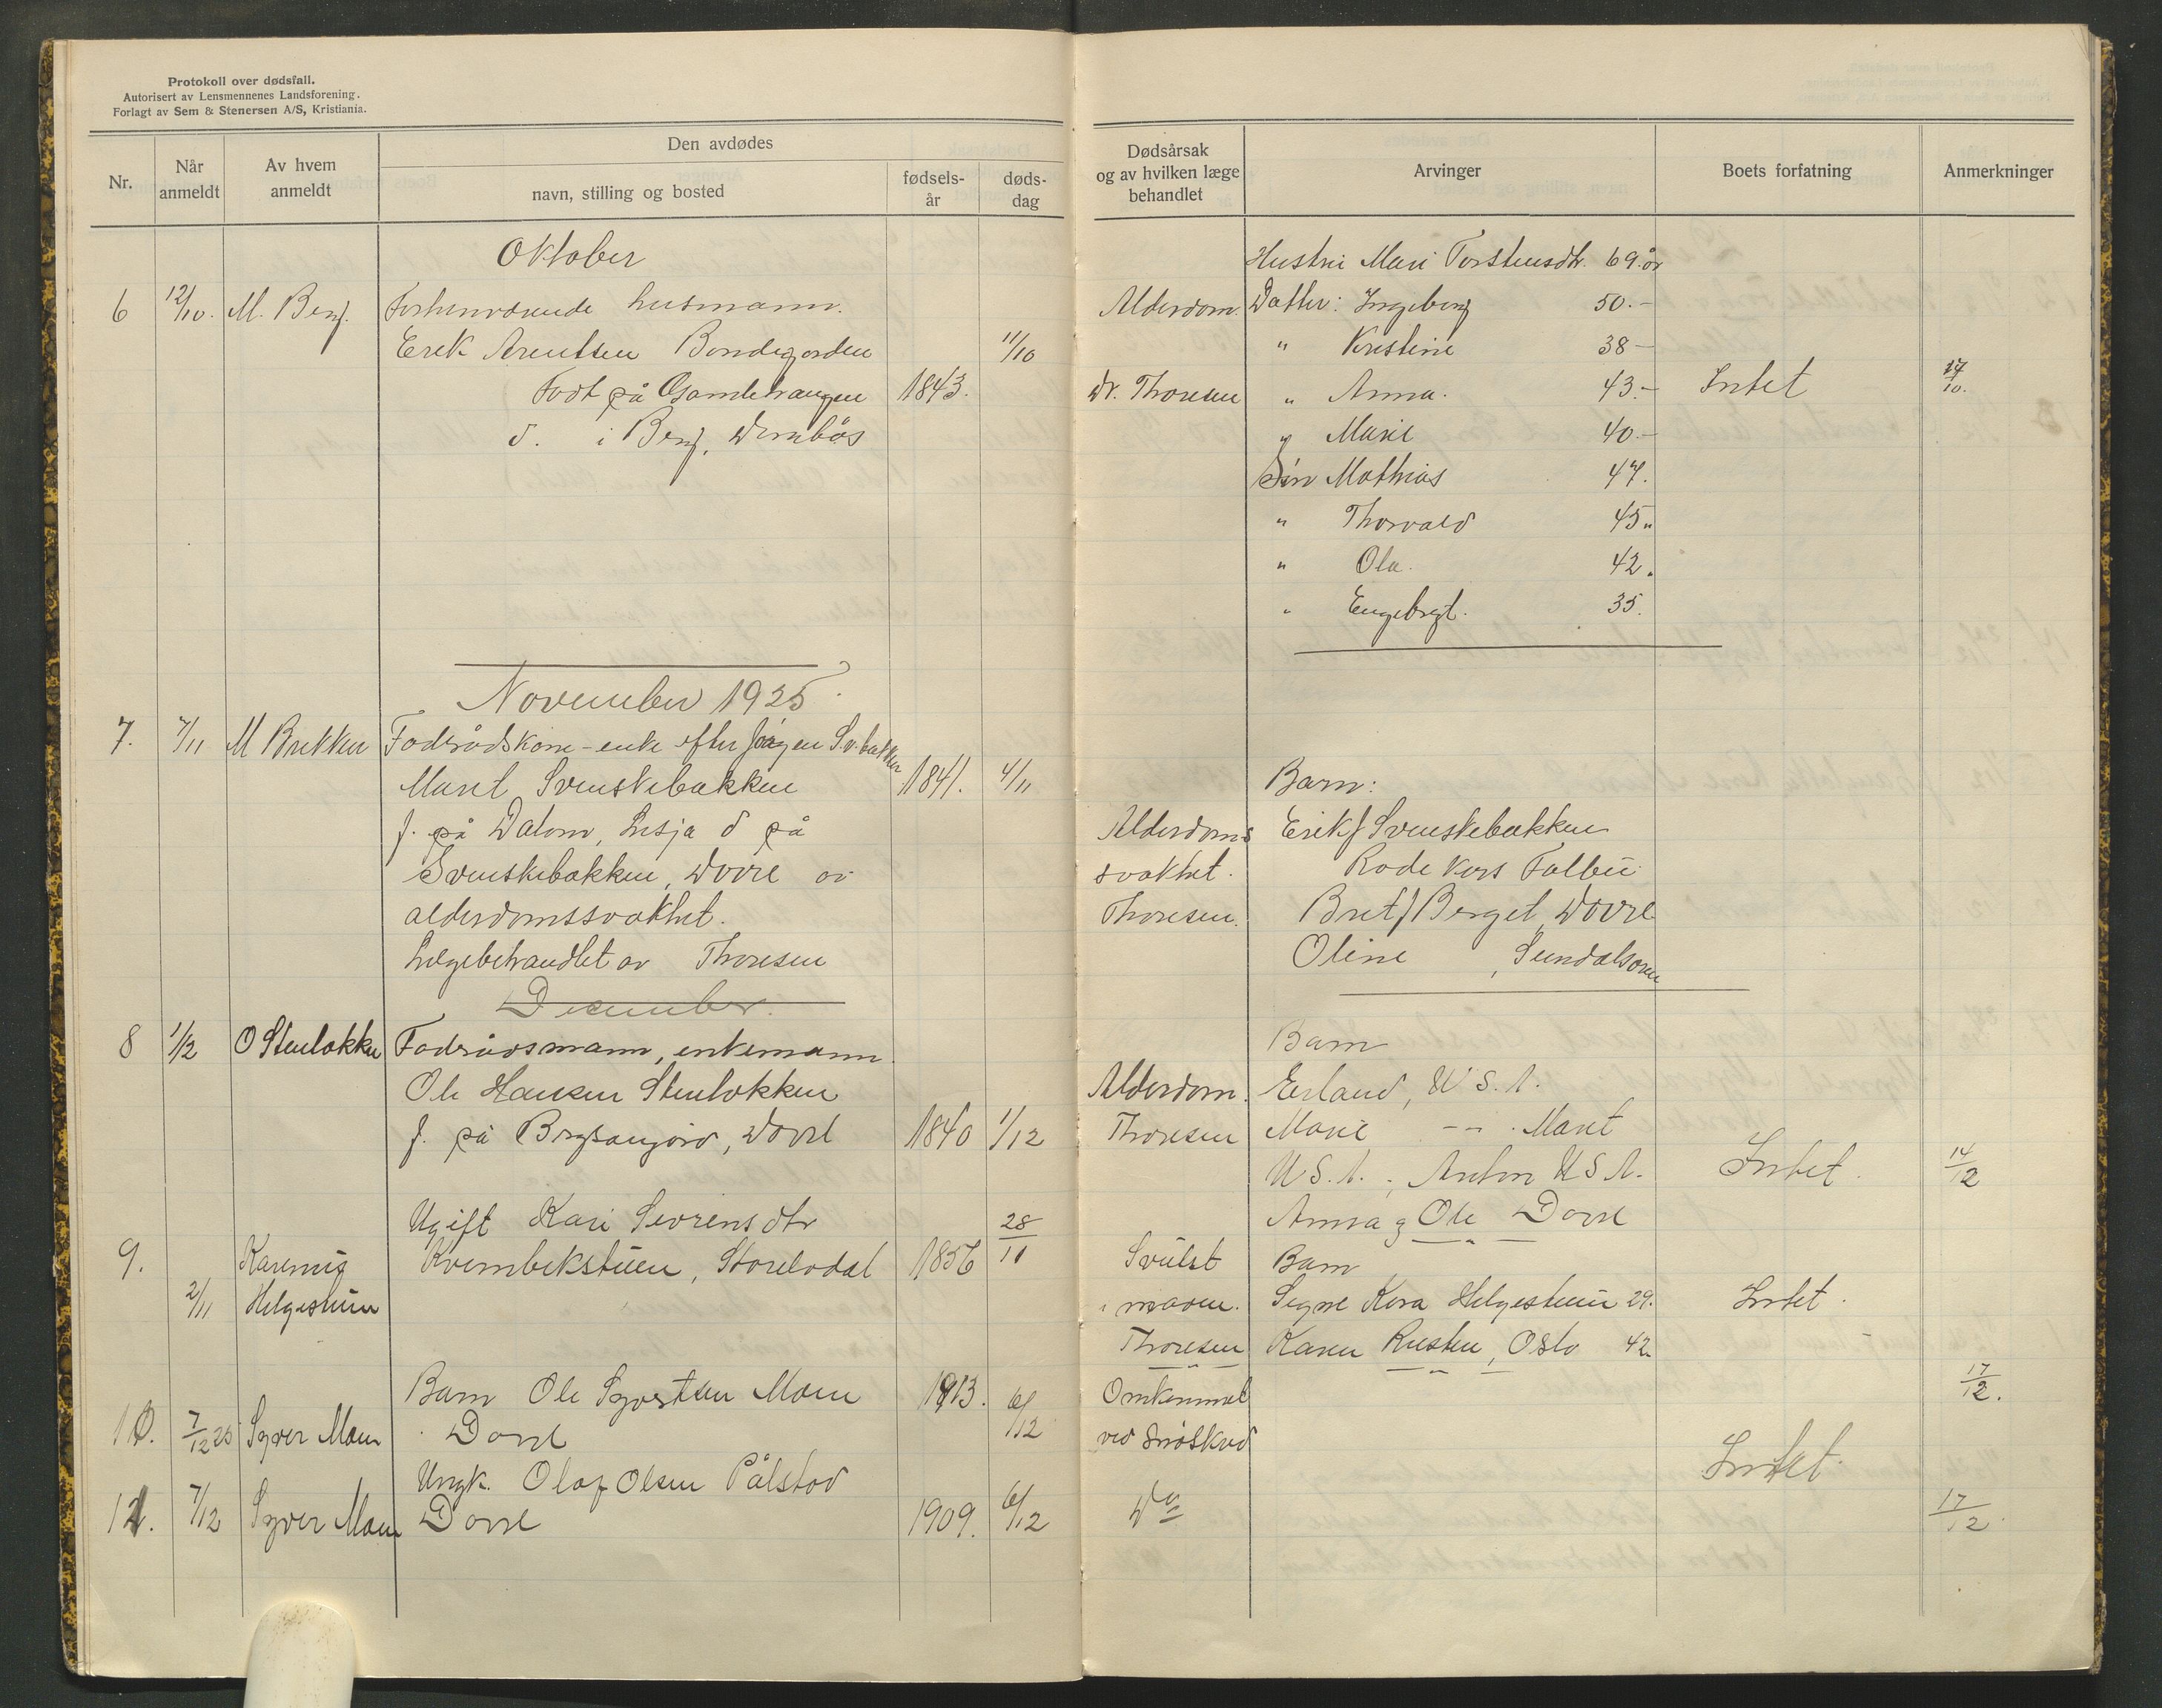 Protokoll over dødsfall.
Autorisert av Lensmennenes Landsforening.
Forlagt av Sem & Stenersen A/S, Kristiania.
Nr.
Når anmeldt
Av hvem anmeldt
Den avdødes
navn, stilling og bosted
fødsels-år
døds-dag
Dødsårsak og av hvilken læge behandlet
Arvinger
Boets forfatning
Anmerkninger
Oktober
6 12/10. M. Berg. Forhenværende husmann.
Erik Arentsen Bondegorden 11/10
Født på Gamlehaugen 1843.
d. i Berg, Dombås
Alderdom.
Dr. Thoresen
Hustru Mari Torstensdtr. 69 år
Datter: Ingeborg 50.-
" Kristine 38-
" Anna. 43.-
" Marie 40.-
Søn Mathias 47.
" Thorvald 45"
" Ola. 42.
" Engebrigt. 35.
Intet
17/10.
November 1925.
7. 7/11 M Brekken Føderådskone - enke efter Jørgen Sv.bakken
Marit Svenskebakken 1841. 4/11
f. på Dalom, Lesja d på
Svenskebakken, Dovre av
alderdomssvakhet.
Lægebehandlet av Thoresen
Alderdoms
svakhet.
Thoresen.
Barn:
Erik J Svenskebakken
Røde Kors Follbu
Brit J Berget, Dovre
Oline , Sundalsøren
December.
8 1/12 O Stenløkken Føderådsmann, enkemann
Ole Hansen Stenløkken
f. på , Dovre 1840 1/12
Alderdom.
Thoresen
Barn
Erland, U.S.A.
Marie -"- Marit
U.S.A., Anton U S A.
Anna og Ole Dovre
Intet.
14/12
Ugift Kari Sevrensdtr 28/10
9. Karenus Kvernbekstuen, Storelvdal 1856
2/11 Helgestuen
Svulst
i maven.
Thoresen
Barn
Signe Kora Helgestuen 29.
Karen Rusten, Oslo 42
Intet.
17/12.
Barn Ole Syvertsen Moen 1913. 6/12
10. 7/12 25 Syver Moen Dovre
Omkommet
ved snøskred
Intet.
Ungk. Olaf Olsen Pålstad
11. 7/12 Syver Moen Dovre 1909. 6/12
Do
17/12.